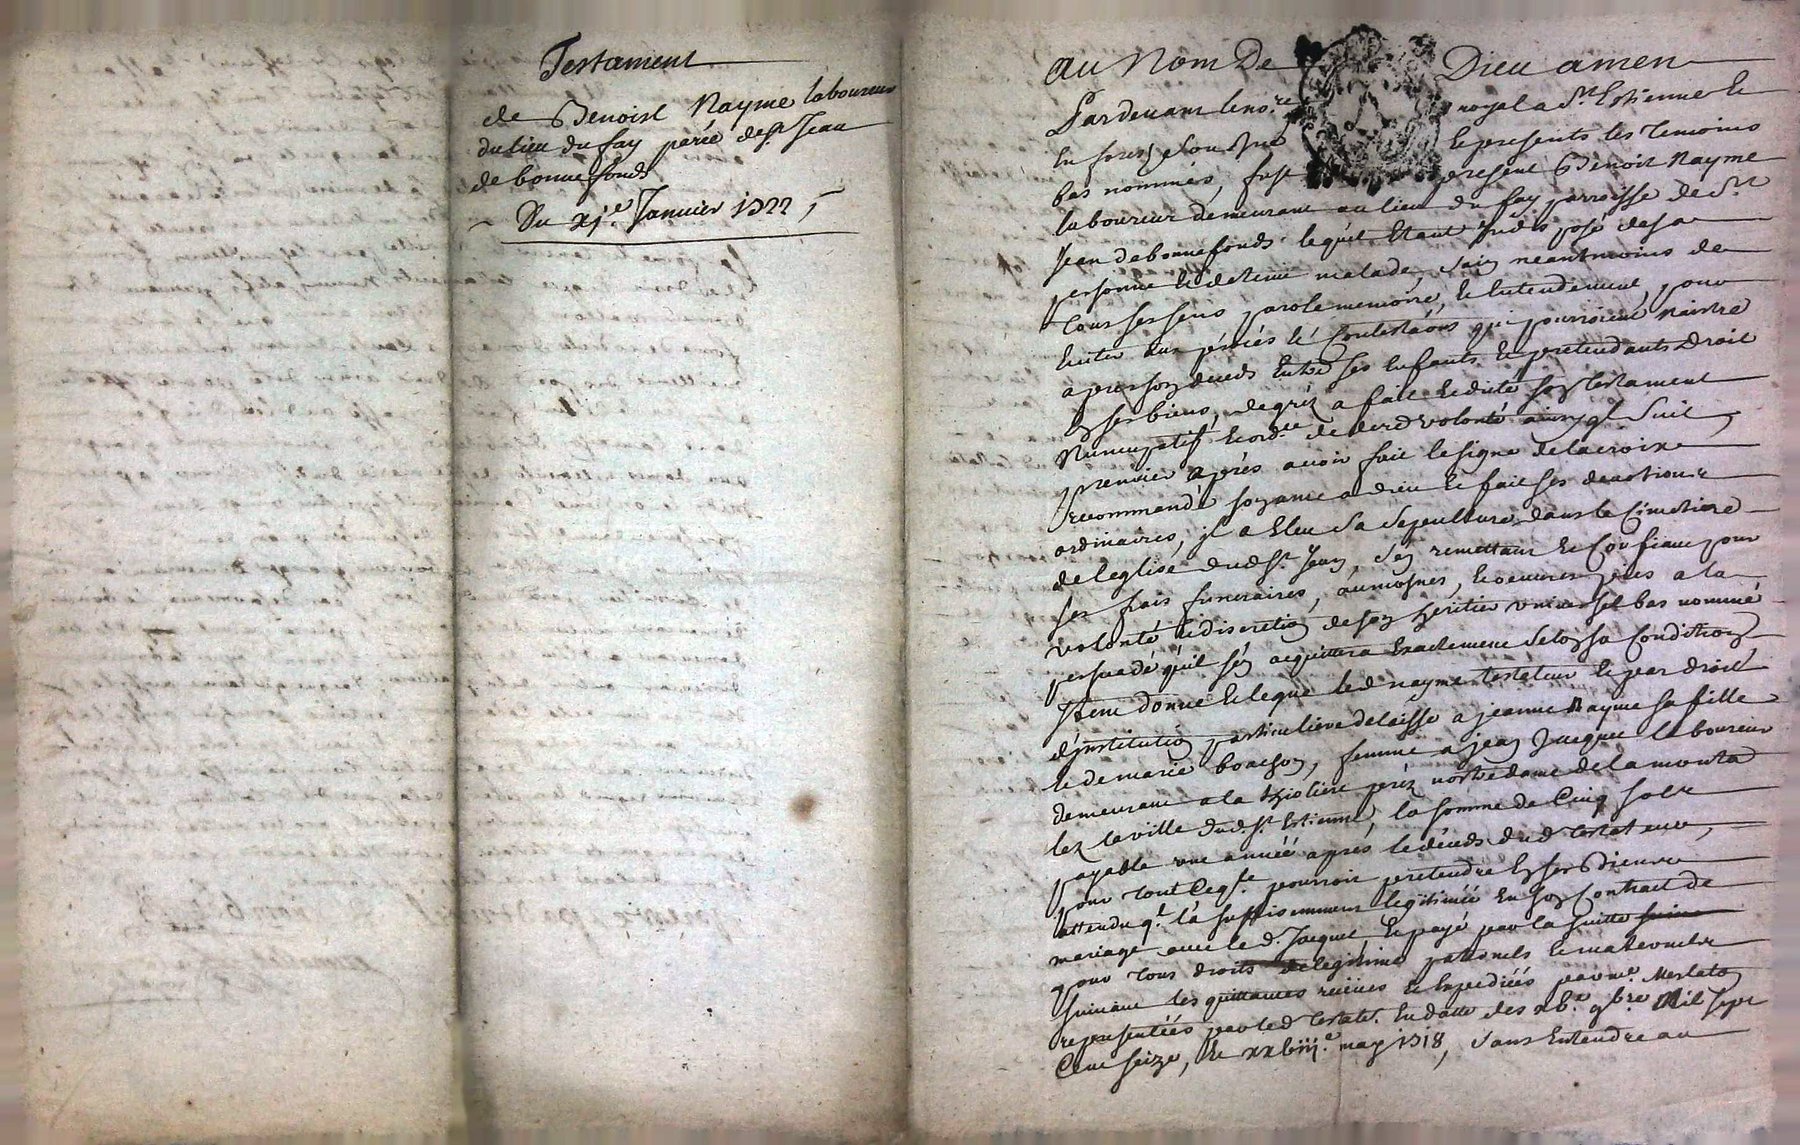 Testament
de Benoist Nayme laboureur
du lieu du fay parée de St Jean
de bonnefonds
Du xj.e Janvier 1722
Au Nom De Dieu amen
Pardevant le no.re royal a St Estienne le
en forest soubsigné Et presents les Temoins
bas nommés, fust present Benoist Nayme
laboureur demeurant au lieu du fay parroisse de St
Jean de bonnefonds lequel Etant Indisposé de sa
personne Et detenu malade, sain neantmoins de
tous ses sens parole memoire, Et Entendement, pour
Eviter aux procés Et Contesta͠ons qui pourroient Naistre
apres son deceds Entre ses Enfants Et pretendants droit
En ses biens, de gréz a fait Et dicté son testament
Nuncupatif Et ord.re de der.e volonté ainsy q.l suit
premier aprés avoir fait le signe de la croix
recommandé son ame a dieu Et fait ses devotions
ordinaires, jl a Eleu sa sepulture dans le Cimetiere
de leglise dud St Jean, s'en remettant Et Confiant pour
ses frais funeraires, aumosnes, Et oeuvres pies a la
volonté Et discretion de son heritier universel bas nommé
persuadé qu'il s'en acquittera Exactement selon sa Condition
Item donne Et legue led nayme testateur Et par droit
d'jnstitution particuliere delaisse a jeanne Nayme sa fille
Et de marie bonchon, femme a jean Jacquet laboureur
demeurant a la prés nostre dame de la monta
lez la ville dud. St Estienne, la somme de Cinq sols
payable une année aprés le décéds dud testateur,
pour tout Ce q. pourroit pretendre En ses Biens
attendu q.l l'a suffisemment legitimée En son Contract de
mariage avec led. Jacquet, Et payé par la suitte
pour tous droits de legitime paternels Et maternels
suivant les quittances receües Et Expediées par me Merlaton
representées par led testat.r En datte des xb.e 9bre Mil sept
Cent seize, Et xxbiij.e may 1718, sans Entendre au